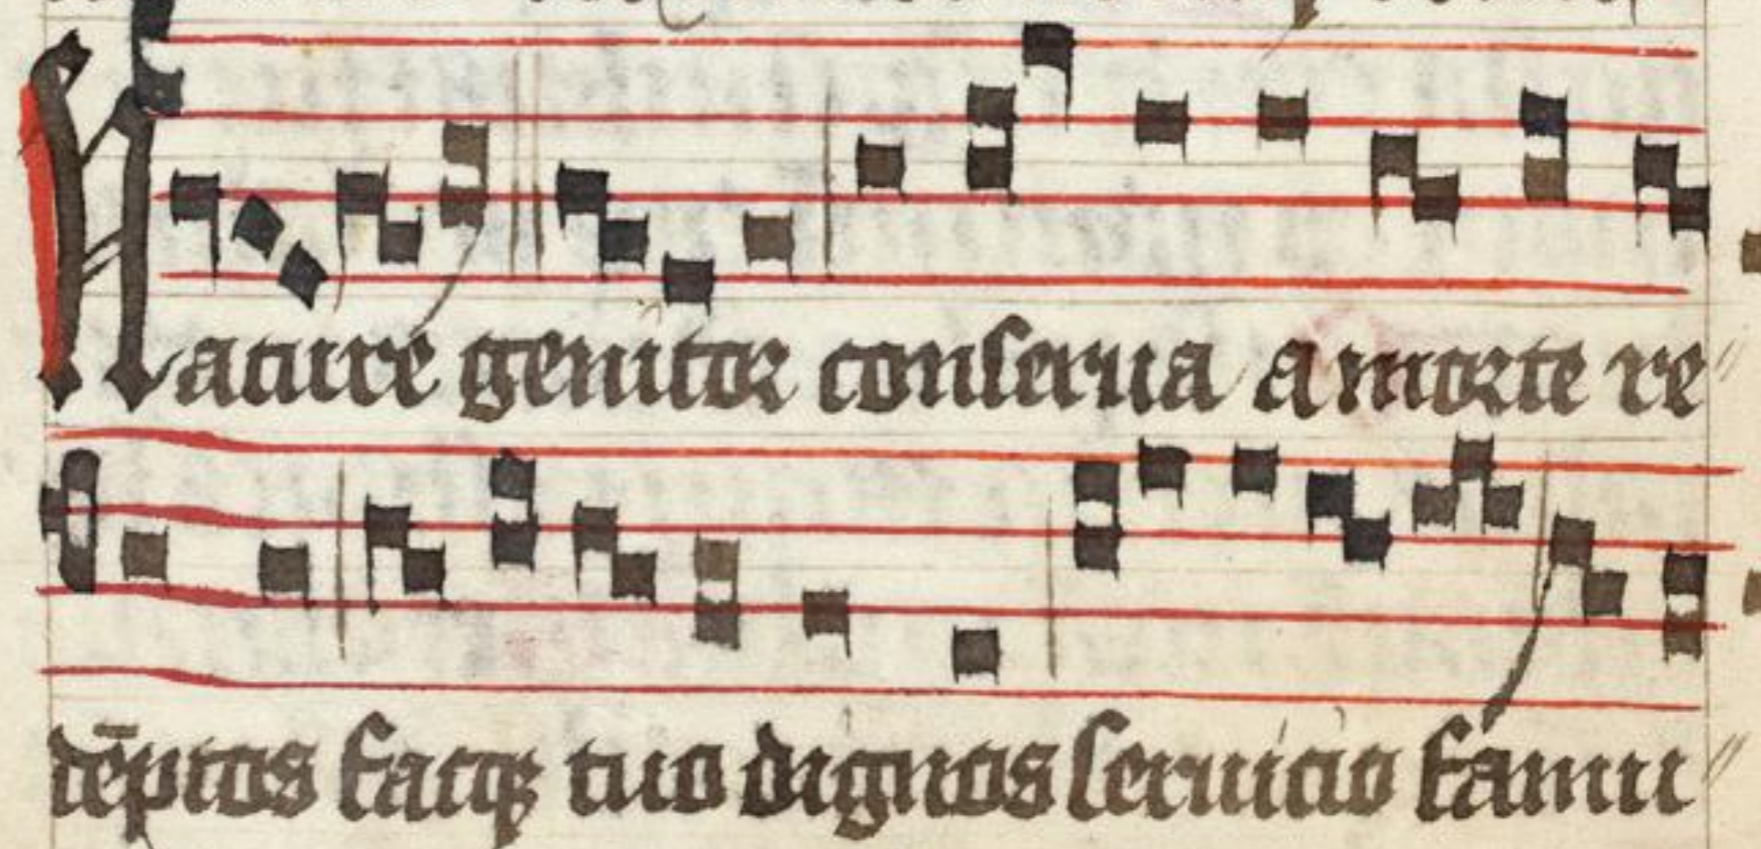 Nature genitor conserua a morte re〃
dēptos facqꝫ tuo dignos seruicio famu〃